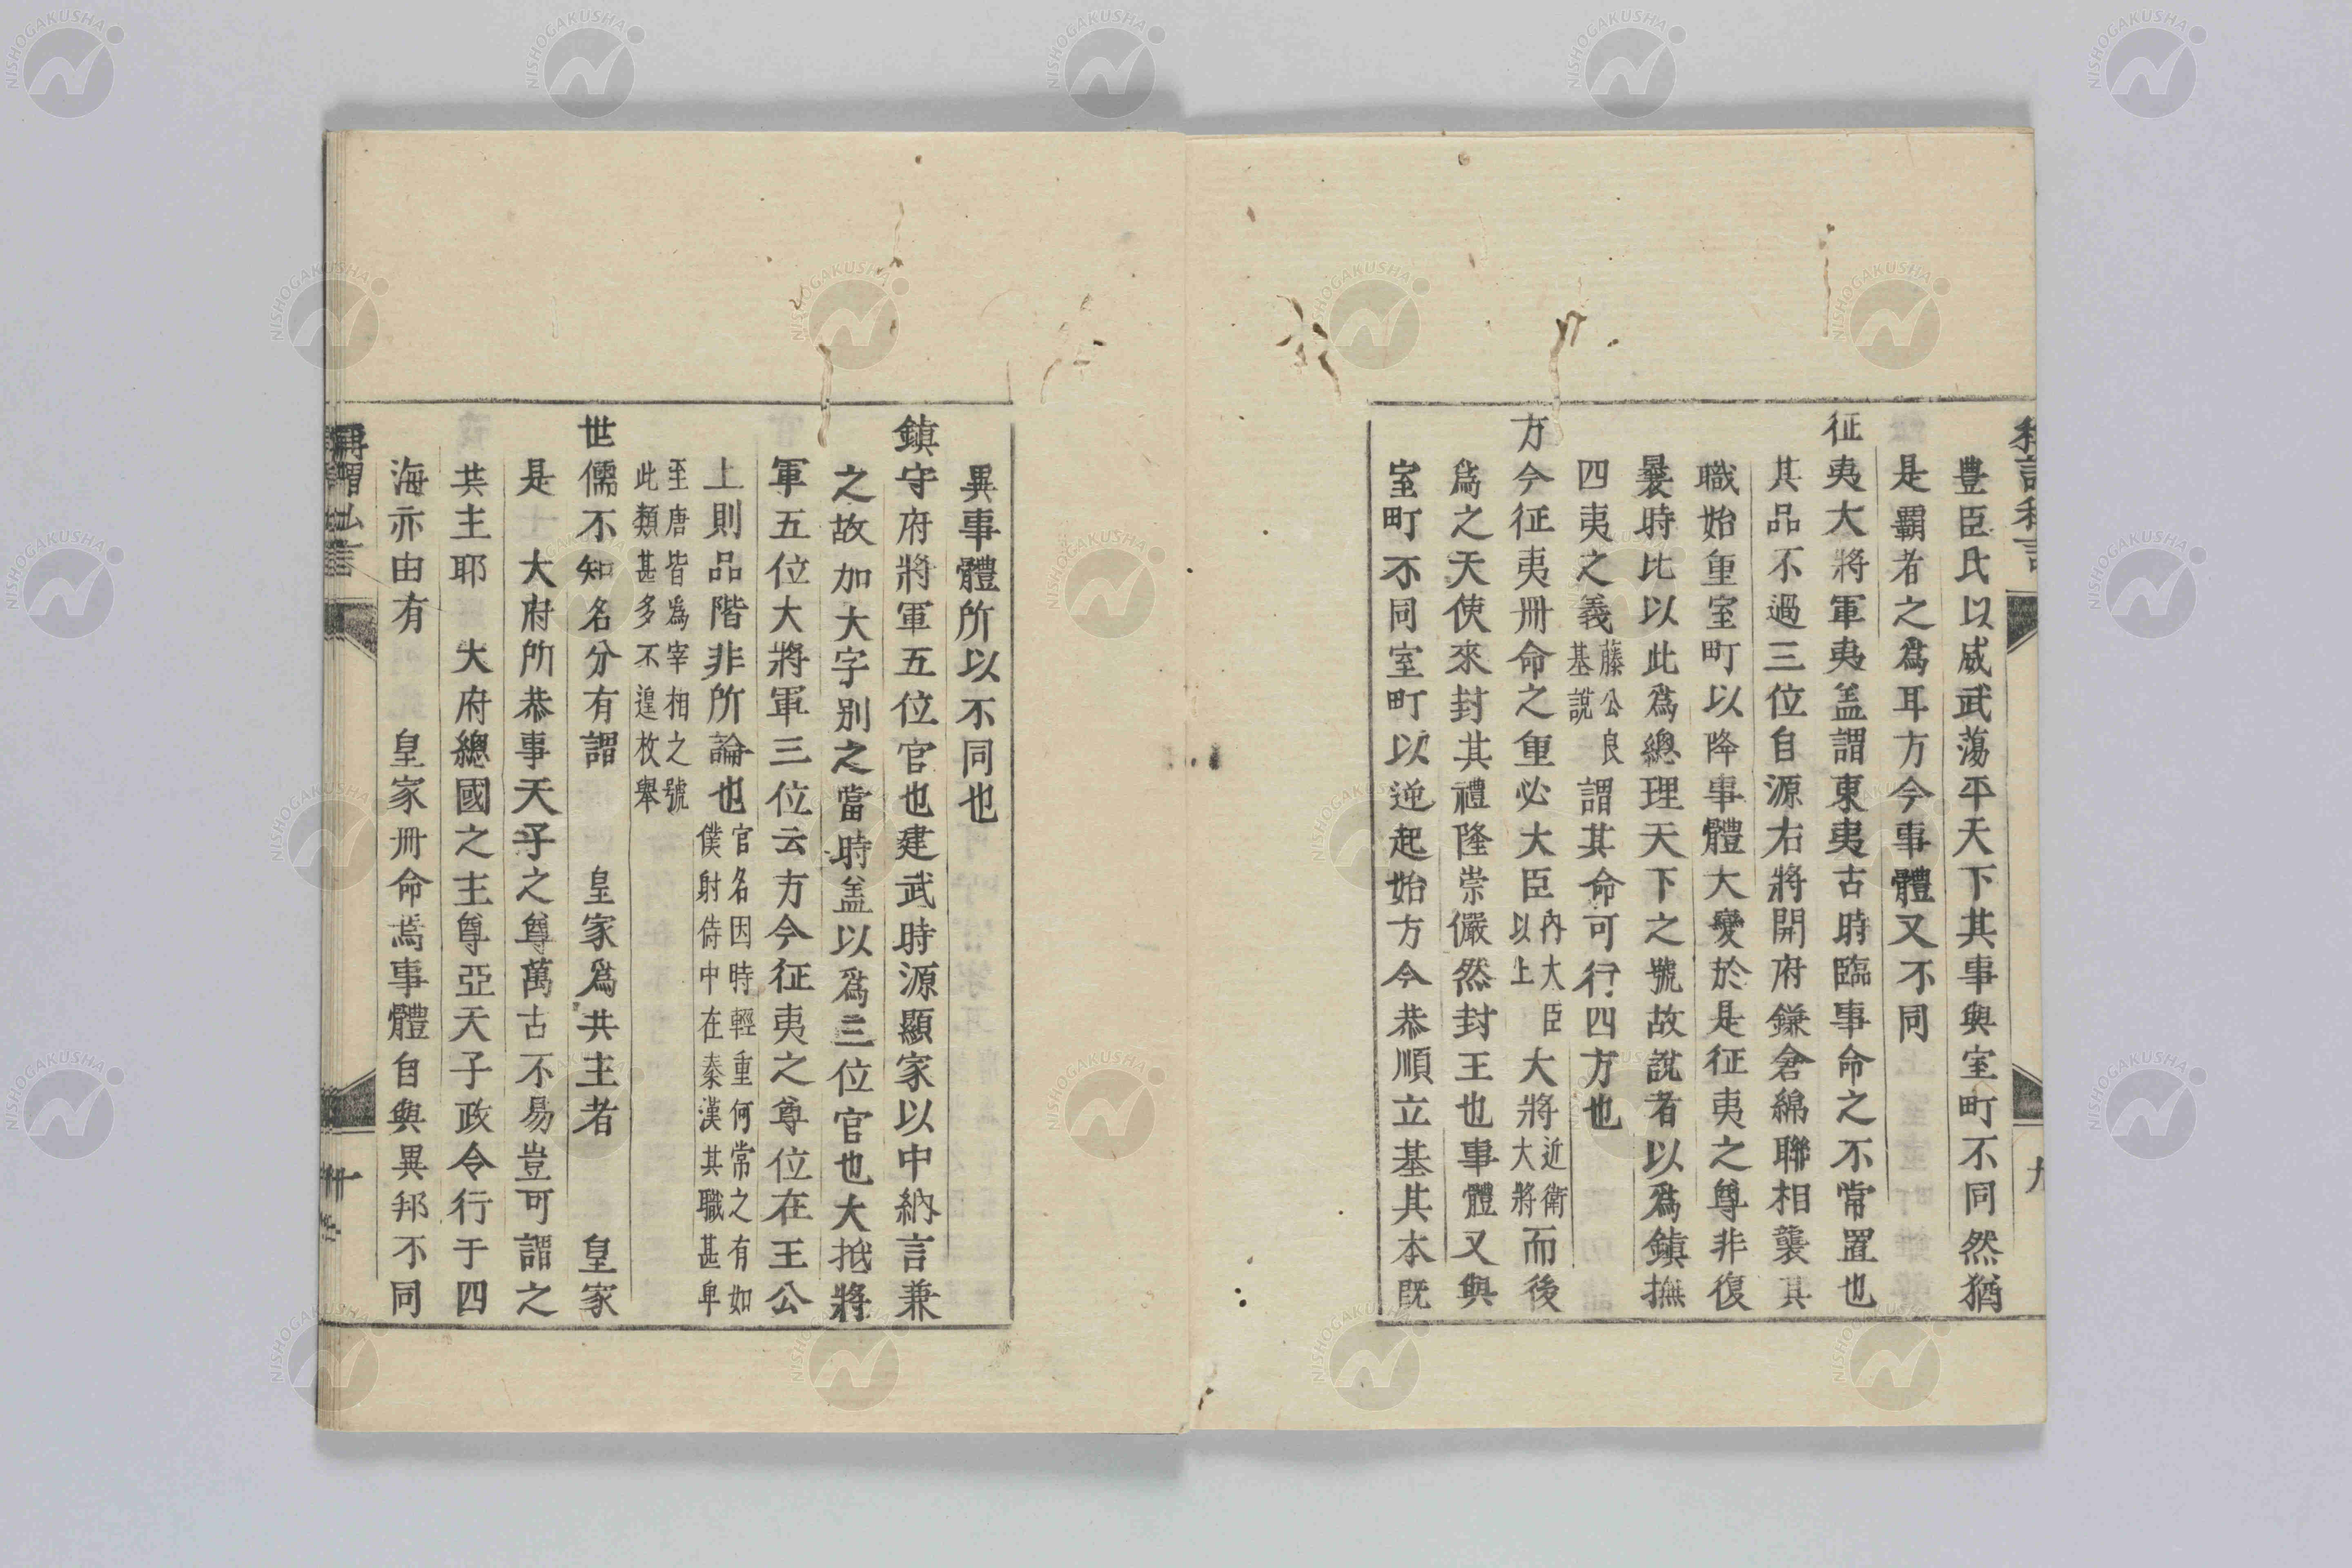 豊臣氏以威武蕩平天下其事與室町不同然猶
是覇者之爲耳方今事體又不同
征夷大將軍夷盖謂東夷古時臨事命之不常置也
其品不過三位自源右將開府鎌倉綿聯相襲其
職始重室町以降事體大變於是征夷之尊非復
曩時比以此爲總理天下之號故說者以爲鎮撫
四夷之義藤公良基說謂其命可行四方也
方今征夷冊命之重必大臣內大臣以上大將近衛大將而後
爲之天使來封其禮隆崇儼然封王也事體又與
室町不同室町以逆起始方今恭順立基其本既
異事體所以不同也
鎮守府將軍五位官也建武時源顯家以中納言兼
之故加大字別之當時盖以爲三位官也大抵將
軍五位大將軍三位云方今征夷之尊位在王公
上則品階非所論也官名因時輕重何常之有如僕射侍中在秦漢其職甚卑
至唐皆爲宰相之號此類甚多不遑枚舉
世儒不知名分有謂 皇家爲共主者 皇家
是 大府所恭事天子之尊萬古不易豈可謂之
共主耶 大府總國之主尊亞天子政令行于四
海亦由有 皇家冊命焉事體自與異邦不同
NISHOGAKUSHA